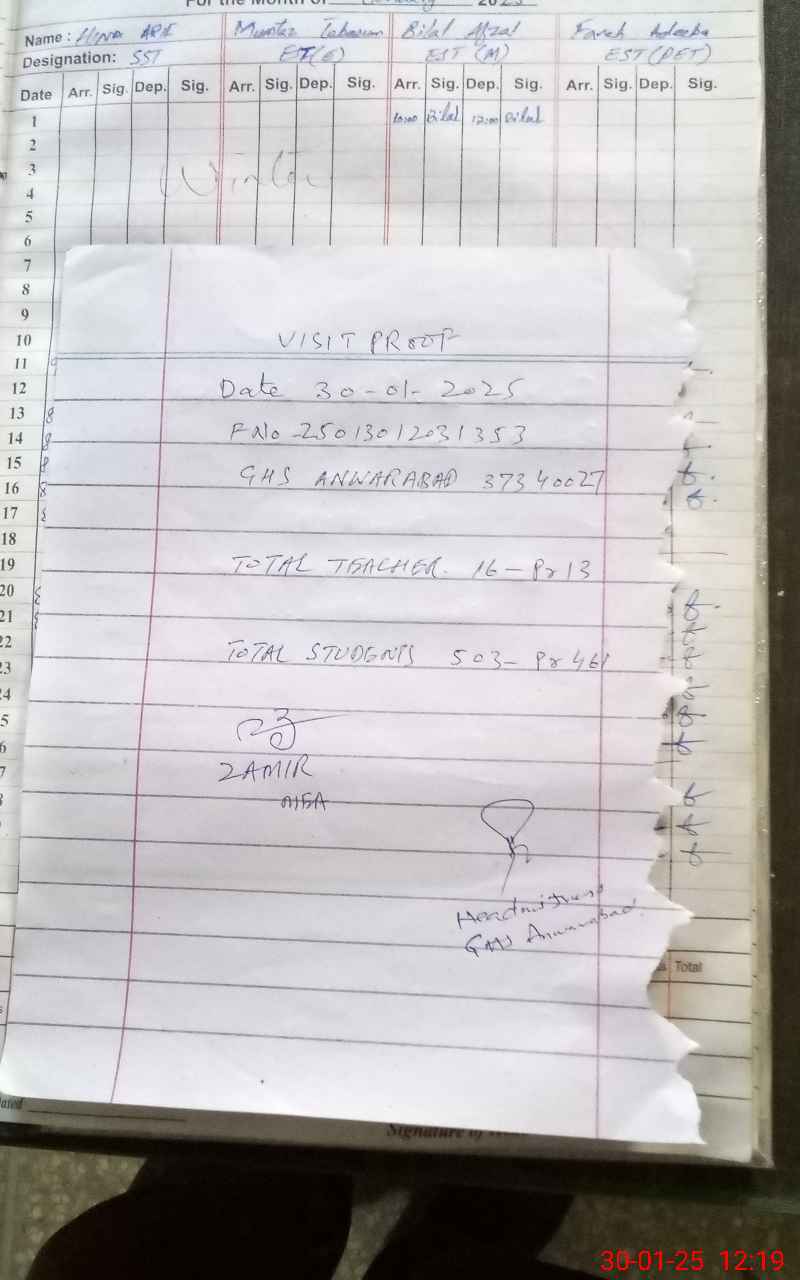 For the Month of 2025
Name: Hina Mumtaz Tabasum Bilal Afzal Farah Adeeba
Designation: SST EST(E) EST (M) EST (PET)
Date Arr. Sig. Dep. Sig. Arr. Sig. Dep. Sig. Arr. Sig. Dep. Sig. Arr. Sig. Dep. Sig.
1 10:00 Bilal 12:00 Bilal
2
3
4
5
6
7
8
9
10
11
12
13
14
15
16
17
18
19
20
21
22
23
24
VISIT PROOF
Date 30-01-2025
F No 25013012031353
GHS ANWARABAD 37340027
TOTAL TEACHER. 16 - Pr 13
TOTAL STUDENTS 503 - Pr 461
ZAMIR
MEA
Headmistress
GHS Anwarabad.
Total
Signature of
30-01-25 12:19